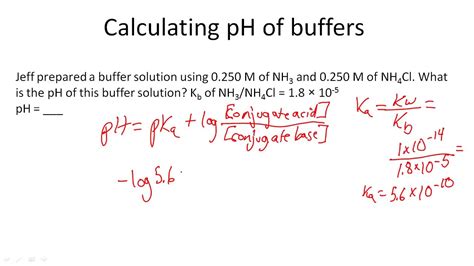 Calculating pH of buffers
Jeff prepared a buffer solution using 0.250 M of NH₃ and 0.250 M of NH₄Cl. What
is the pH of this buffer solution? K_b of NH₃/NH₄Cl = 1.8 × 10⁻⁵
pH = ___
pH = pKₐ + log [conjugate acid] / [conjugate base]
-log 5.6
Kₐ = Kw / K_b =
1×10⁻¹⁴ / 1.8×10⁻⁵
Kₐ = 5.6×10⁻¹⁰